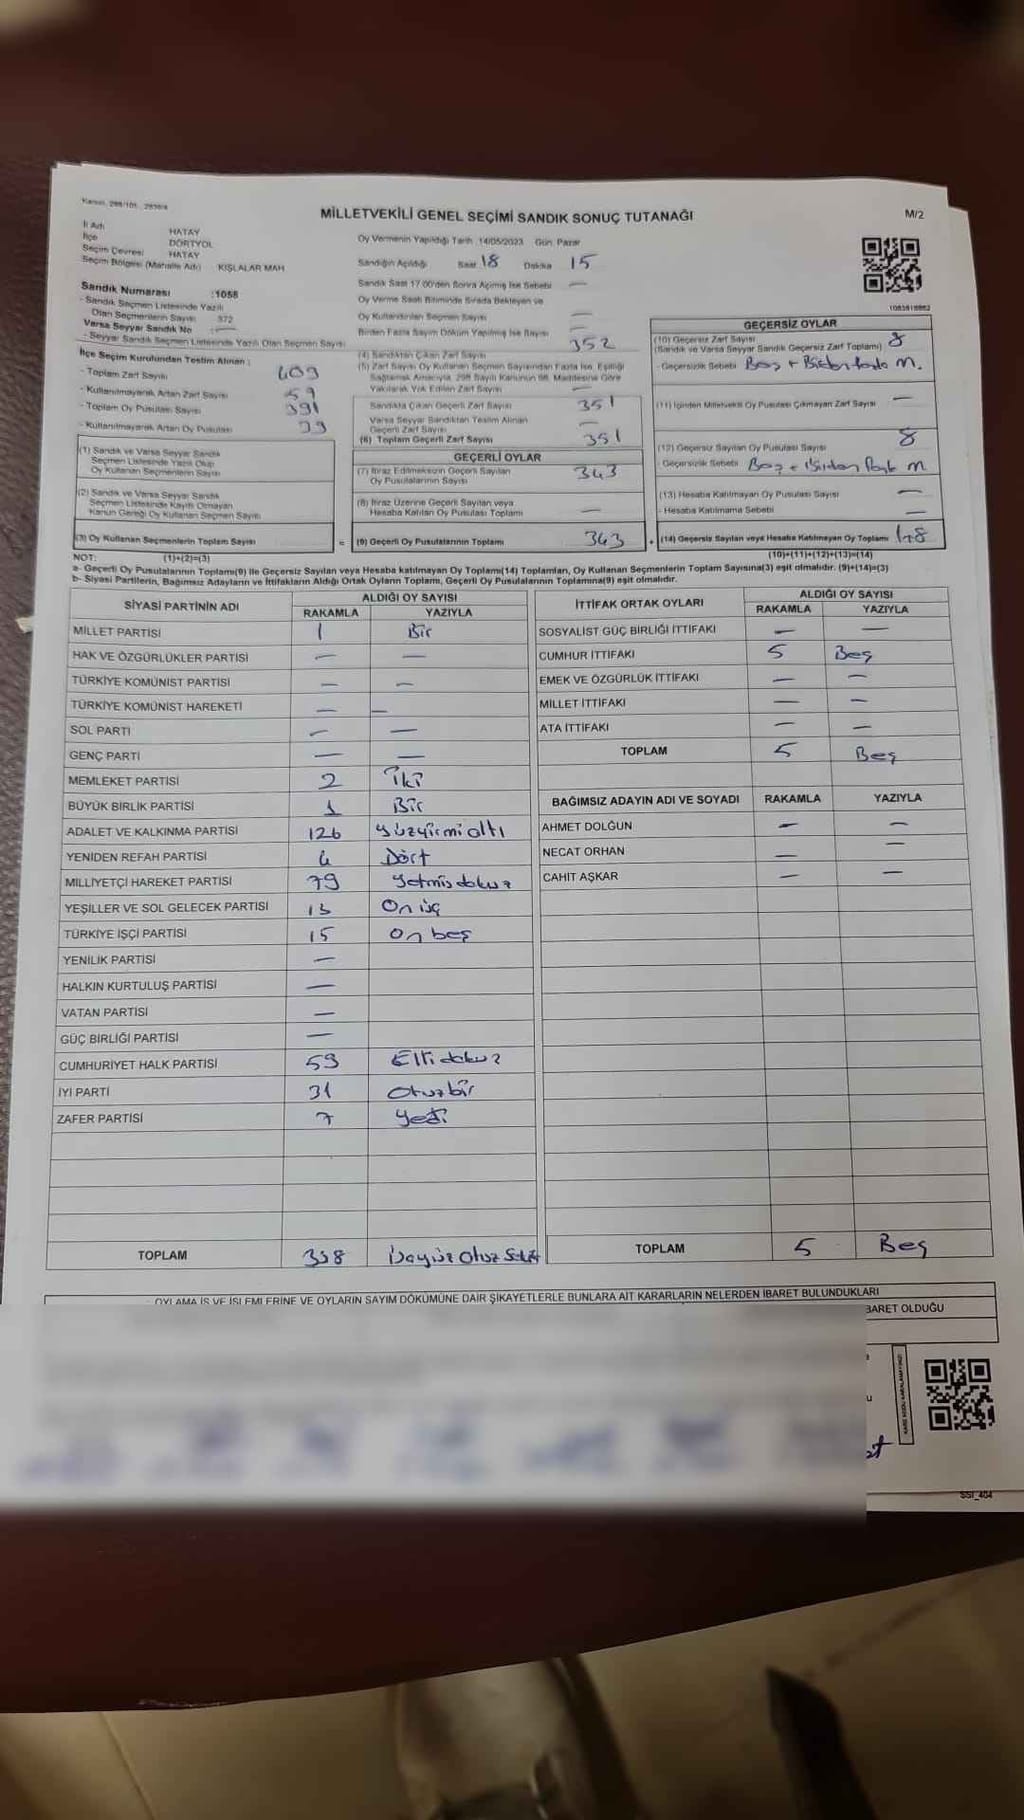 Kanun, 298/105, 2839/4
MİLLETVEKİLİ GENEL SEÇİMİ SANDIK SONUÇ TUTANAĞI
M/2
İl Adı HATAY
İlçe DÖRTYOL
Seçim Çevresi HATAY
Seçim Bölgesi (Mahalle Adı) KIŞLALAR MAH
Oy Vermenin Yapıldığı Tarih 14/05/2023 Gün Pazar
Sandığın Açıldığı Saat 18 Dakika 15
Sandık Numarası :1058
- Sandık Seçmen Listesinde Yazılı
Olan Seçmenlerin Sayısı 372
Varsa Seyyar Sandık No : —
- Seyyar Sandık Seçmen Listesinde Yazılı Olan Seçmen Sayısı
İlçe Seçim Kurulundan Teslim Alınan :
- Toplam Zarf Sayısı 409
- Kullanılmayarak Artan Zarf Sayısı 59
- Toplam Oy Pusulası Sayısı 391
- Kullanılmayarak Artan Oy Pusulası 39
(1) Sandık ve Varsa Seyyar Sandık
Seçmen Listesinde Yazılı Olup
Oy Kullanan Seçmenlerin Sayısı
(2) Sandık ve Varsa Seyyar Sandık
Seçmen Listesinde Kayıtlı Olmayan
Kanun Gereği Oy Kullanan Seçmen Sayısı
(3) Oy Kullanan Seçmenlerin Toplam Sayısı
Sandık Saat 17.00'den Sonra Açılmış İse Sebebi —
Oy Verme Saati Bitiminde Sırada Bekleyen ve
Oy Kullandırılan Seçmen Sayısı —
Birden Fazla Sayım Döküm Yapılmış İse Sayısı —
(4) Sandıktan Çıkan Zarf Sayısı 352
(5) Zarf Sayısı Oy Kullanan Seçmen Sayısından Fazla İse, Eşitliği
Sağlamak Amacıyla, 298 Sayılı Kanunun 98. Maddesine Göre
Yakılarak Yok Edilen Zarf Sayısı —
Sandıkta Çıkan Geçerli Zarf Sayısı 351
Varsa Seyyar Sandıktan Teslim Alınan
Geçerli Zarf Sayısı —
(6) Toplam Geçerli Zarf Sayısı 351
GEÇERLİ OYLAR
(7) İtiraz Edilmeksizin Geçerli Sayılan
Oy Pusulalarının Sayısı 343
(8) İtiraz Üzerine Geçerli Sayılan veya
Hesaba Katılan Oy Pusulası Toplamı —
= (9) Geçerli Oy Pusulalarının Toplamı 343 +
1083618862
GEÇERSİZ OYLAR
(10) Geçersiz Zarf Sayısı 8
(Sandık ve Varsa Seyyar Sandık Geçersiz Zarf Toplamı)
- Geçersizlik Sebebi Boş + Birden fazla M.
(11) İçinden Milletvekili Oy Pusulası Çıkmayan Zarf Sayısı —
(12) Geçersiz Sayılan Oy Pusulası Sayısı 8
- Geçersizlik Sebebi Boş + Birden fazla M
(13) Hesaba Katılmayan Oy Pusulası Sayısı —
- Hesaba Katılmama Sebebi —
(14) Geçersiz Sayılan veya Hesaba Katılmayan Oy Toplamı
NOT: (1)+(2)=(3) (10)+(11)+(12)+(13)=(14)
a- Geçerli Oy Pusulalarının Toplamı(9) ile Geçersiz Sayılan veya Hesaba katılmayan Oy Toplamı(14) Toplamları, Oy Kullanan Seçmenlerin Toplam Sayısına(3) eşit olmalıdır. (9)+(14)=(3)
b- Siyasi Partilerin, Bağımsız Adayların ve İttifakların Aldığı Ortak Oyların Toplamı, Geçerli Oy Pusulalarının Toplamına(9) eşit olmalıdır.
SİYASİ PARTİNİN ADI ALDIĞI OY SAYISI
RAKAMLA YAZIYLA
MİLLET PARTİSİ 1 Bir
HAK VE ÖZGÜRLÜKLER PARTİSİ — —
TÜRKİYE KOMÜNİST PARTİSİ — —
TÜRKİYE KOMÜNİST HAREKETİ — —
SOL PARTİ — —
GENÇ PARTİ — —
MEMLEKET PARTİSİ 2 İki
BÜYÜK BİRLİK PARTİSİ 1 Bir
ADALET VE KALKINMA PARTİSİ 126 yüzyirmialtı
YENİDEN REFAH PARTİSİ 4 Dört
MİLLİYETÇİ HAREKET PARTİSİ 79 yetmişdokuz
YEŞİLLER VE SOL GELECEK PARTİSİ 13 Onüç
TÜRKİYE İŞÇİ PARTİSİ 15 on beş
YENİLİK PARTİSİ —
HALKIN KURTULUŞ PARTİSİ —
VATAN PARTİSİ —
GÜÇ BİRLİĞİ PARTİSİ —
CUMHURİYET HALK PARTİSİ 59 Elli dokuz
İYİ PARTİ 31 Otuzbir
ZAFER PARTİSİ 7 yedi
TOPLAM 338 üçyüz Otuz Sekiz
İTTİFAK ORTAK OYLARI ALDIĞI OY SAYISI
RAKAMLA YAZIYLA
SOSYALİST GÜÇ BİRLİĞİ İTTİFAKI — —
CUMHUR İTTİFAKI 5 Beş
EMEK VE ÖZGÜRLÜK İTTİFAKI — —
MİLLET İTTİFAKI — —
ATA İTTİFAKI — —
TOPLAM 5 Beş
BAĞIMSIZ ADAYIN ADI VE SOYADI RAKAMLA YAZIYLA
AHMET DOLĞUN — —
NECAT ORHAN — —
CAHİT AŞKAR — —
TOPLAM 5 Beş
OYLAMA İŞ VE İŞLEMLERİNE VE OYLARIN SAYIM DÖKÜMÜNE DAİR ŞİKAYETLERLE BUNLARA AİT KARARLARIN NELERDEN İBARET BULUNDUKLARI
BARET OLDUĞU